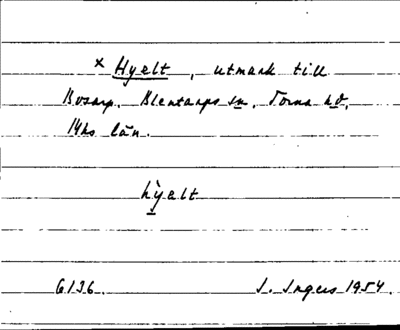 × Hyelt, utmark till
Bosarp. Blentarps sn, Torna hd,
Mhs län.
hỳelt
6136. I. Ingers 1954.